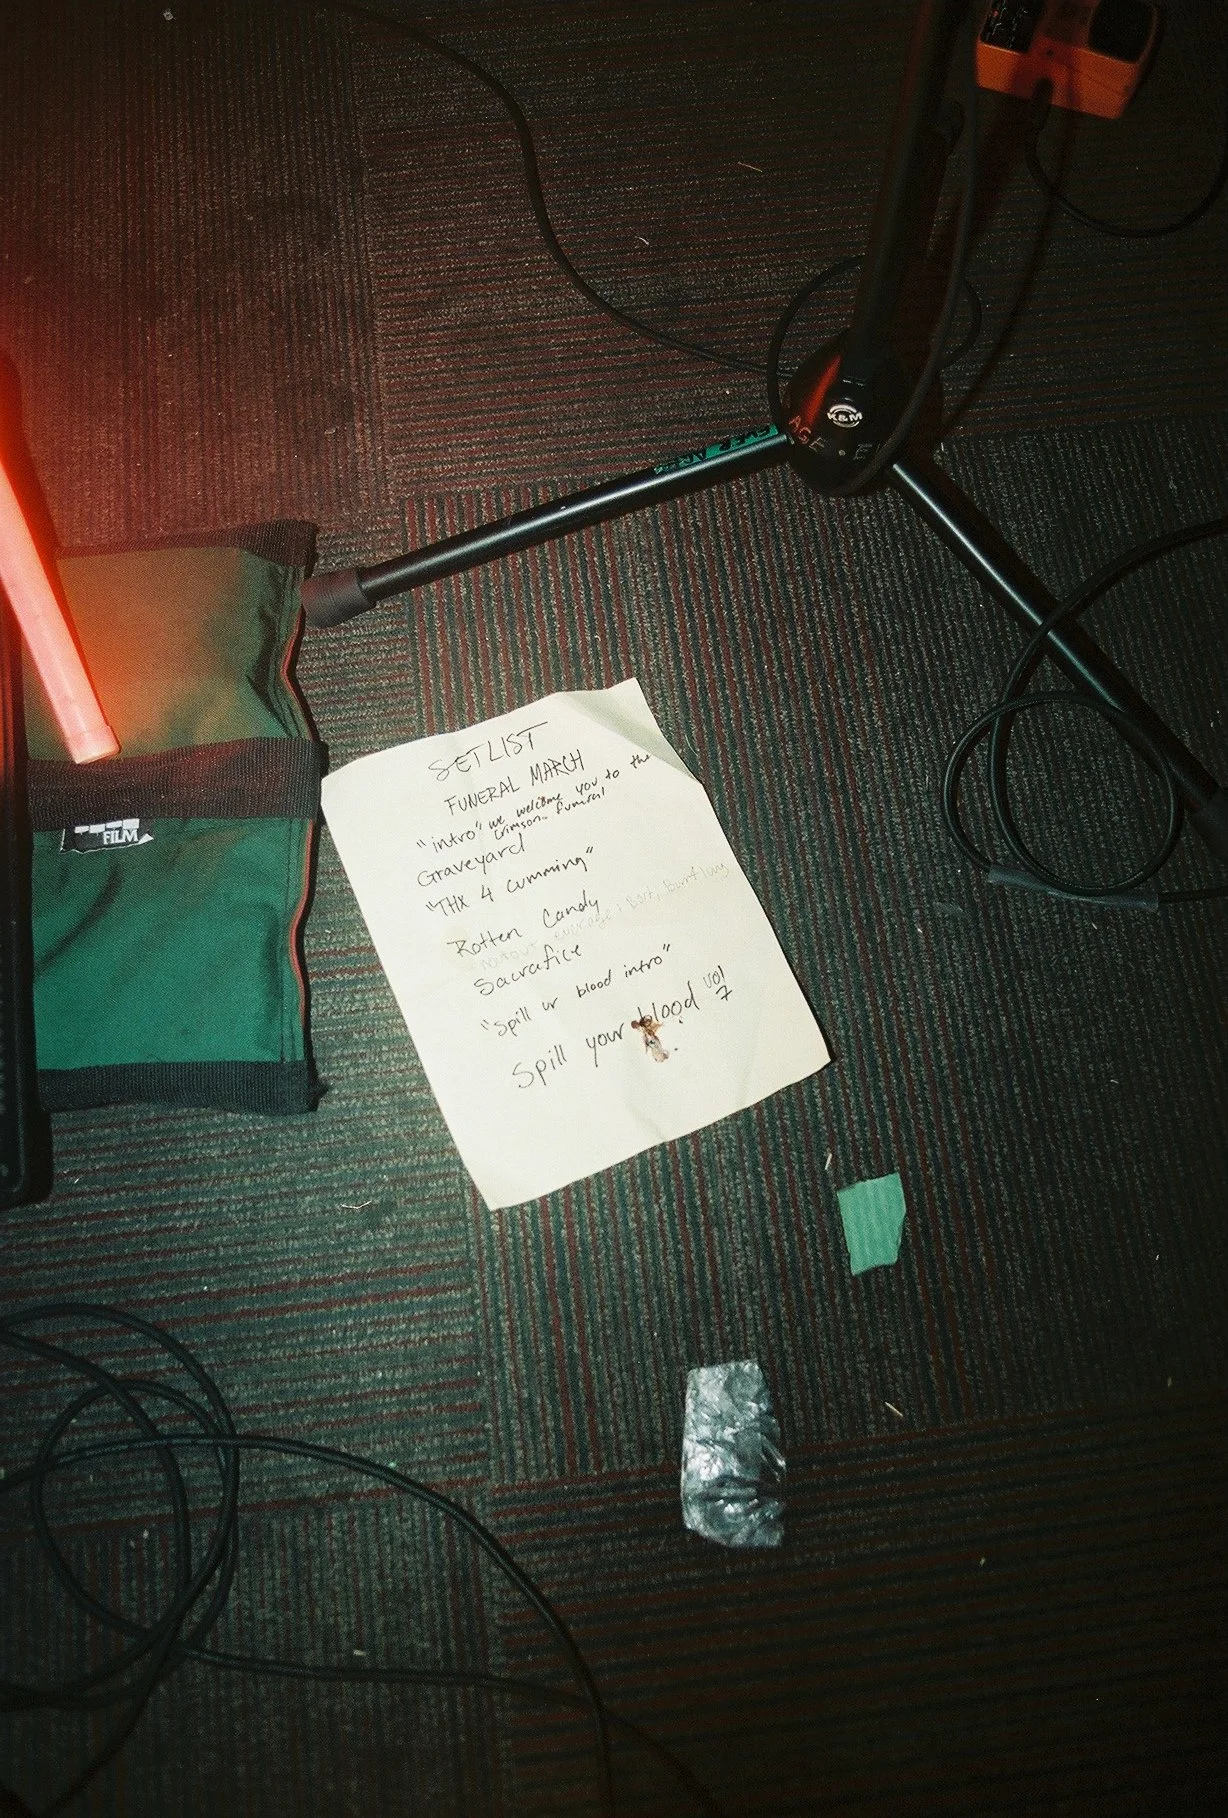 SETLIST
FUNERAL MARCH
"intro" we welcome you to the
Crimson funeral
Graveyard
"THX 4 cumming"
Rotten Candy
Sacrafice
"Spill ur blood intro"
Spill your blood vol
7
FILM
K&M